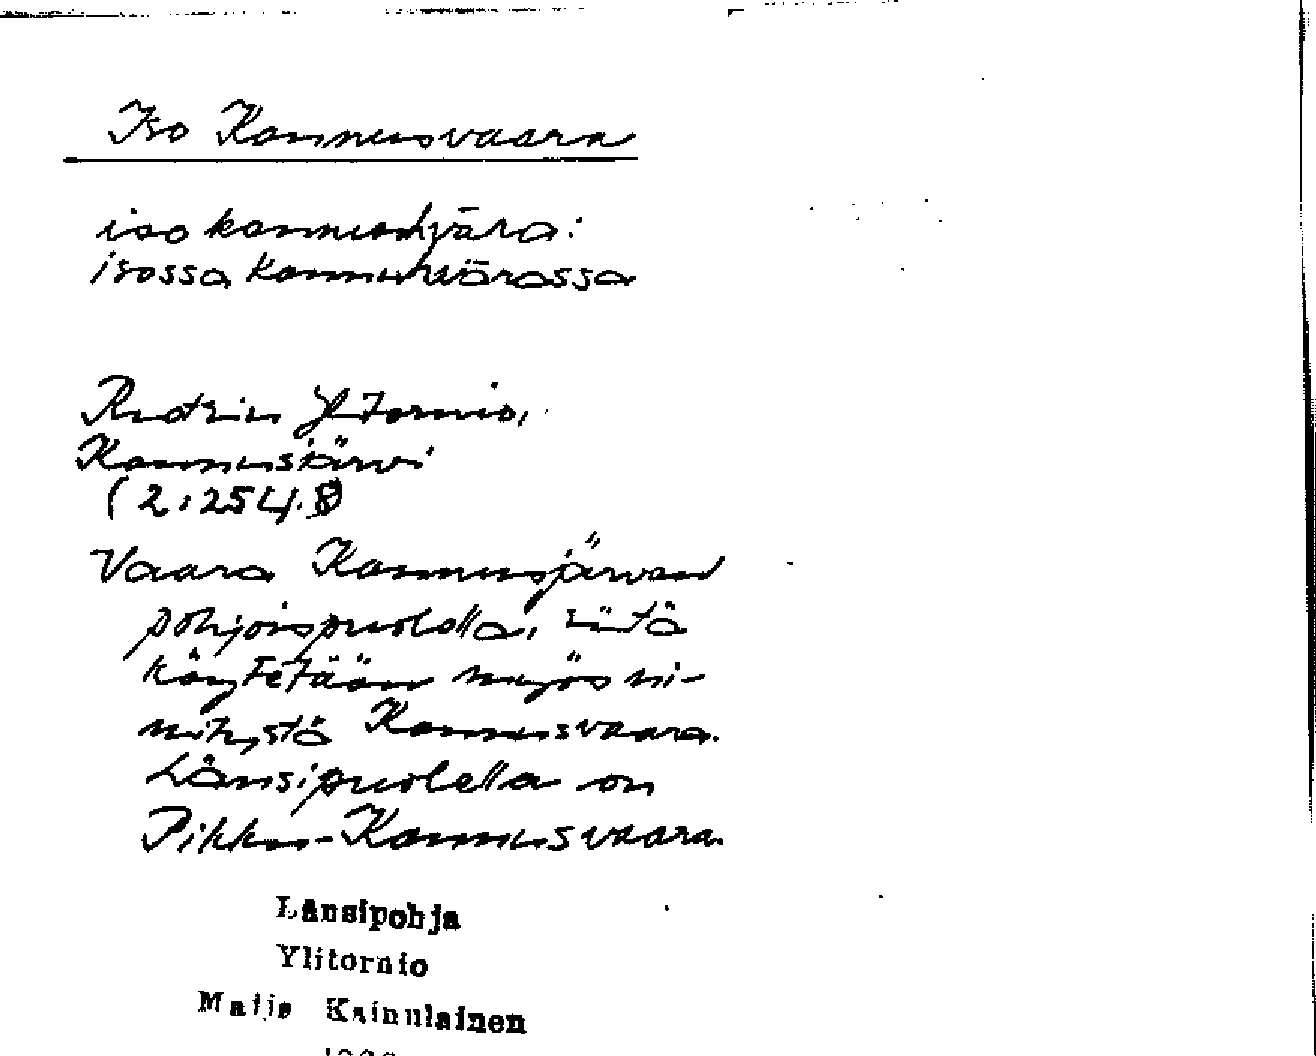 Iso Kannusvaara
iso kannusvāra:
isossa kannusvārassa
Ruotsin Ylitornio,
Kannusjärvi
(2:254.8)
Vaara Kannusjärven
pohjoispuolella, siitä
käytetään myös ni-
mitystä Kannusvaara.
Länsipuolella on
Pikku-Kannusvaara.
Länsipohja
Ylitornio
Maija Kainulainen